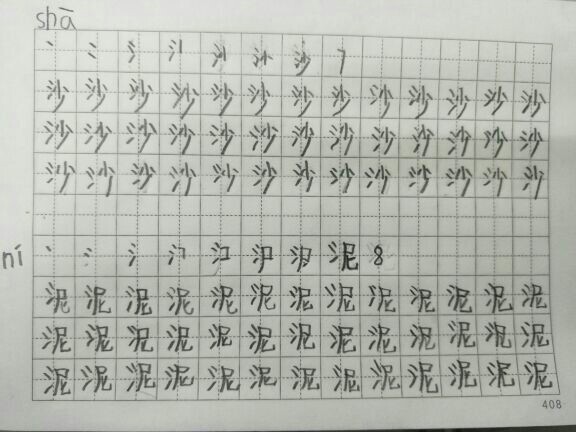 shā
丶 冫 氵 沙 7
沙 沙 沙 沙 沙 沙 沙 沙 沙 沙 沙 沙 沙
沙 沙 沙 沙 沙 沙 沙 沙 沙 沙 沙 沙 沙
沙 沙 沙 沙 沙 沙 沙 沙 沙 沙 沙 沙 沙
ní 丶 冫 氵 泥 8
泥 泥 泥 泥 泥 泥 泥 泥 泥 泥 泥 泥 泥
泥 泥 泥 泥 泥 泥 泥 泥 泥 泥 泥 泥 泥
泥 泥 泥 泥 泥 泥 泥 泥 泥 泥 泥 泥 泥
408